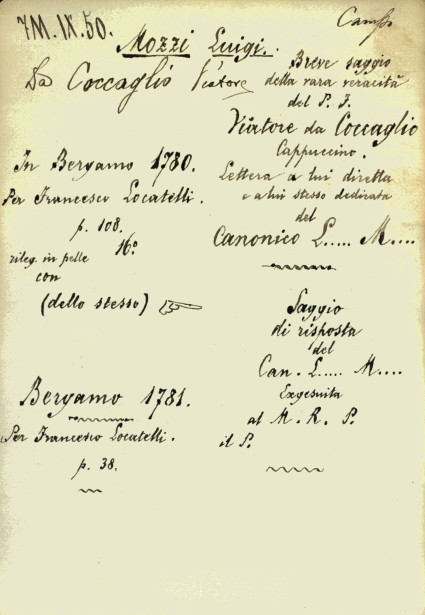 7M.IX.50.
Camp.
Mozzi Luigi.
Da Coccaglio Viatore
Breve saggio
della rara veracità
del P. F.
Viatore da Coccaglio
Cappuccino.
Lettera a lui diretta
e a lui stesso dedicata
del
Canonico L..... M....
In Bergamo 1780.
Per Francesco Locatelli.
p. 108.
16º
rileg. in pelle
con
(dello stesso)
Saggio
di risposta
del
Can. L..... M....
Exgesuita
al M. R. P.
il P.
Bergamo 1781.
Per Francesco Locatelli.
p. 38.